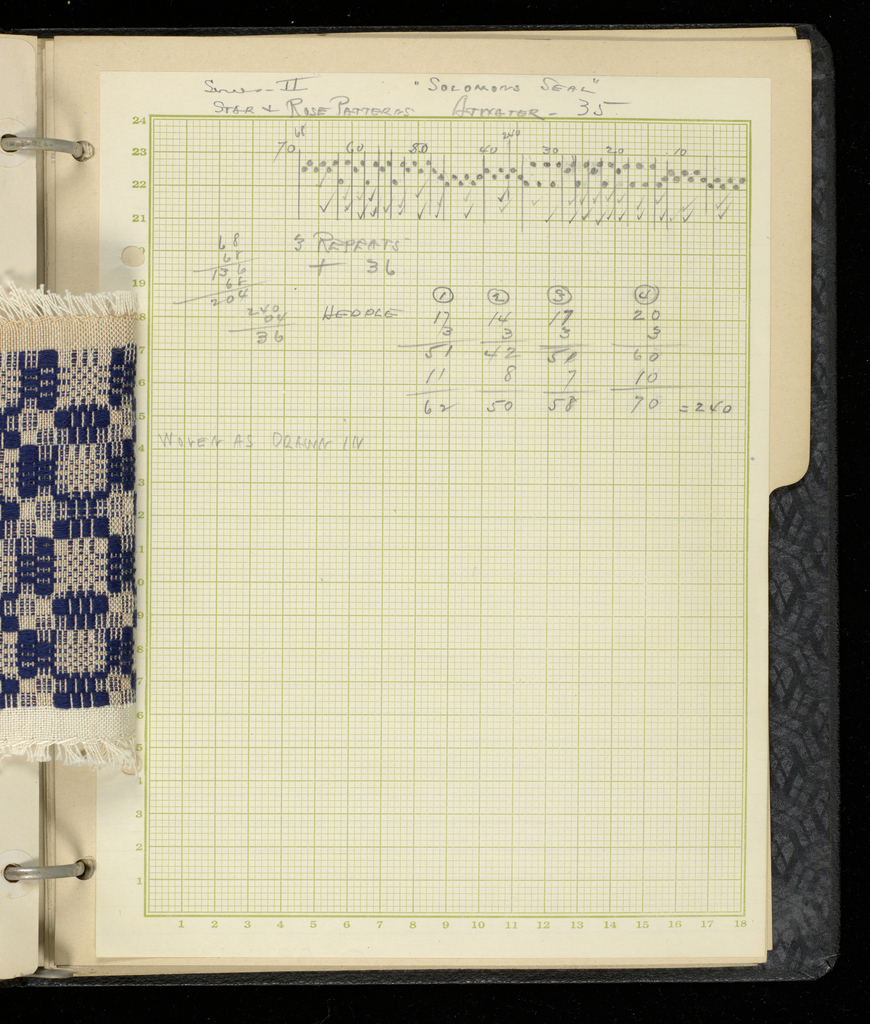 Series - II "SOLOMONS SEAL"
STAR & ROSE PATTERNS ATWATER - 35
68 240
70 60 50 40 30 20 10
3 REPEATS
+ 36
68
68
136
68
204
240
204
36
HEDDLE ① ② ③ ④
17 14 17 20
3 3 3 3
51 42 51 60
11 8 7 10
62 50 58 70 = 240
WOVEN AS DRAWN IN
24
23
22
21
19
18
7
6
5
4
3
2
1
0
9
8
7
6
5
4
3
2
1
1 2 3 4 5 6 7 8 9 10 11 12 13 14 15 16 17 18